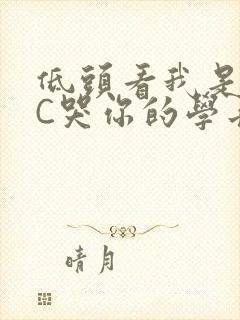 低頭看我是
C哭你的學
晴月